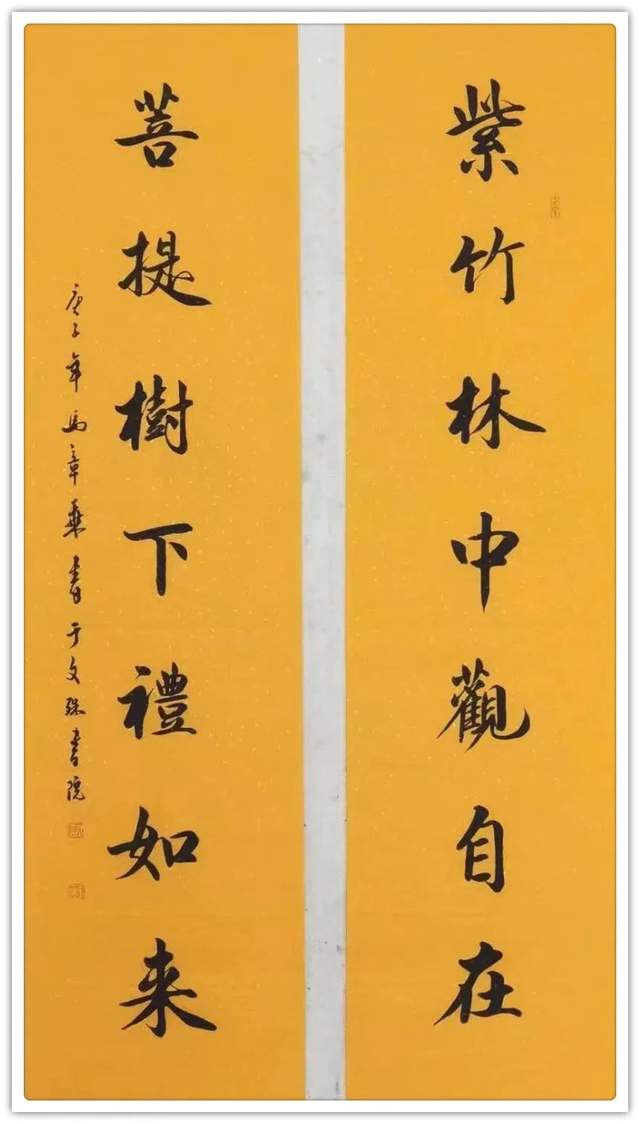 紫竹林中觀自在
菩提樹下禮如来
庚子年馮章乘書于文殊書院